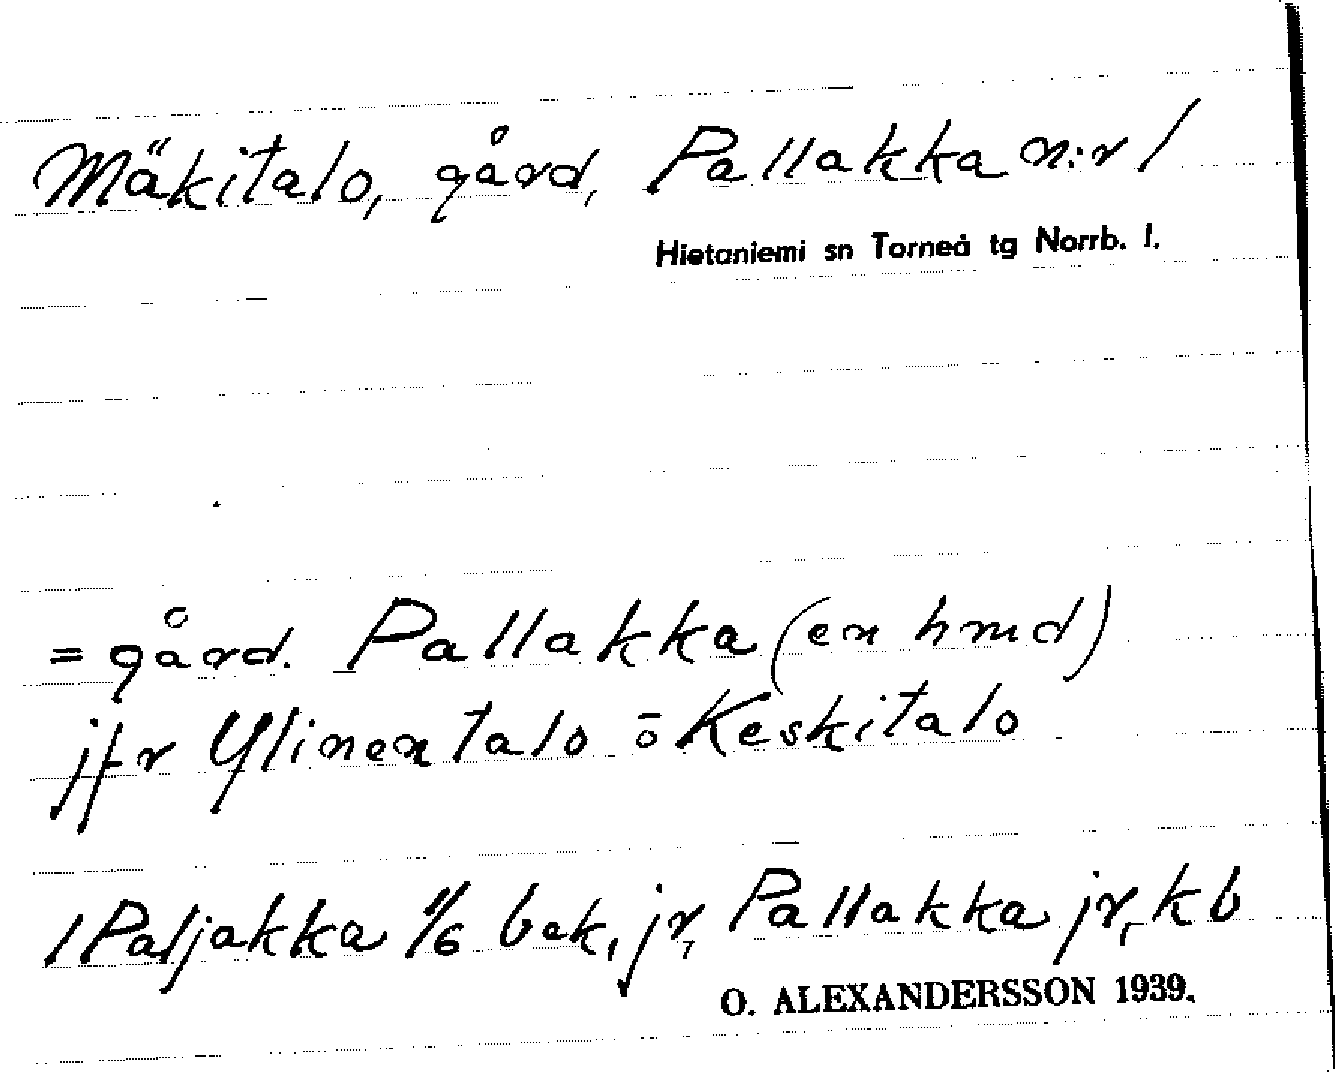 Mäkitalo, gård, Pallakka n:r 1
Hietaniemi sn Torneå tg Norrb. l.
= gård. Pallakka (en hmd)
jfr Ylinentalo o Keskitalo
1 Paljakka 1/6 bek, jr, Pallakka jr, kb
O. ALEXANDERSSON 1939.